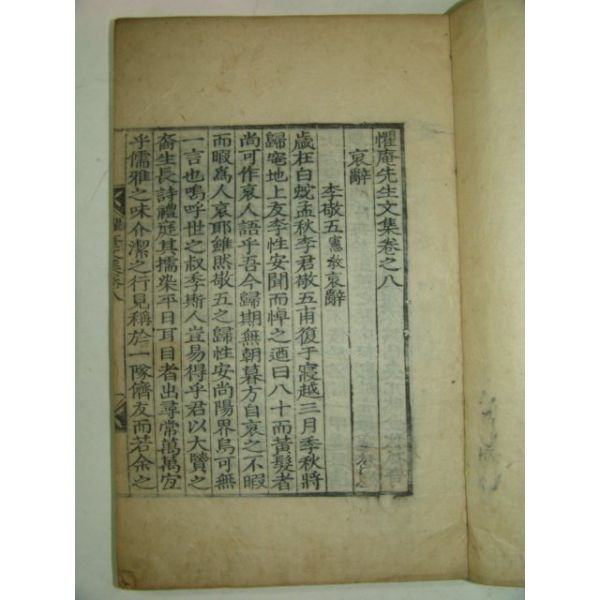 懼庵先生文集卷之八
哀辭
李敬五憲敬哀辭
歲在白蛇孟秋李君敬五甫復于寢越三月季秋將
歸窀地上友李性安聞而悼之迺曰八十而黃髮者
尚可作哀人語乎吾今歸期無朝暮方自哀之不暇
而暇爲人哀耶雖然敬五之歸性安尚陽界烏可無
一言也嗚呼世之叔季斯人豈易得乎君以大賢之
裔生長詩禮庭其擩染平日耳目者出尋常萬萬宜
乎儒雅之味介潔之行見稱於一隊儕友而若余之